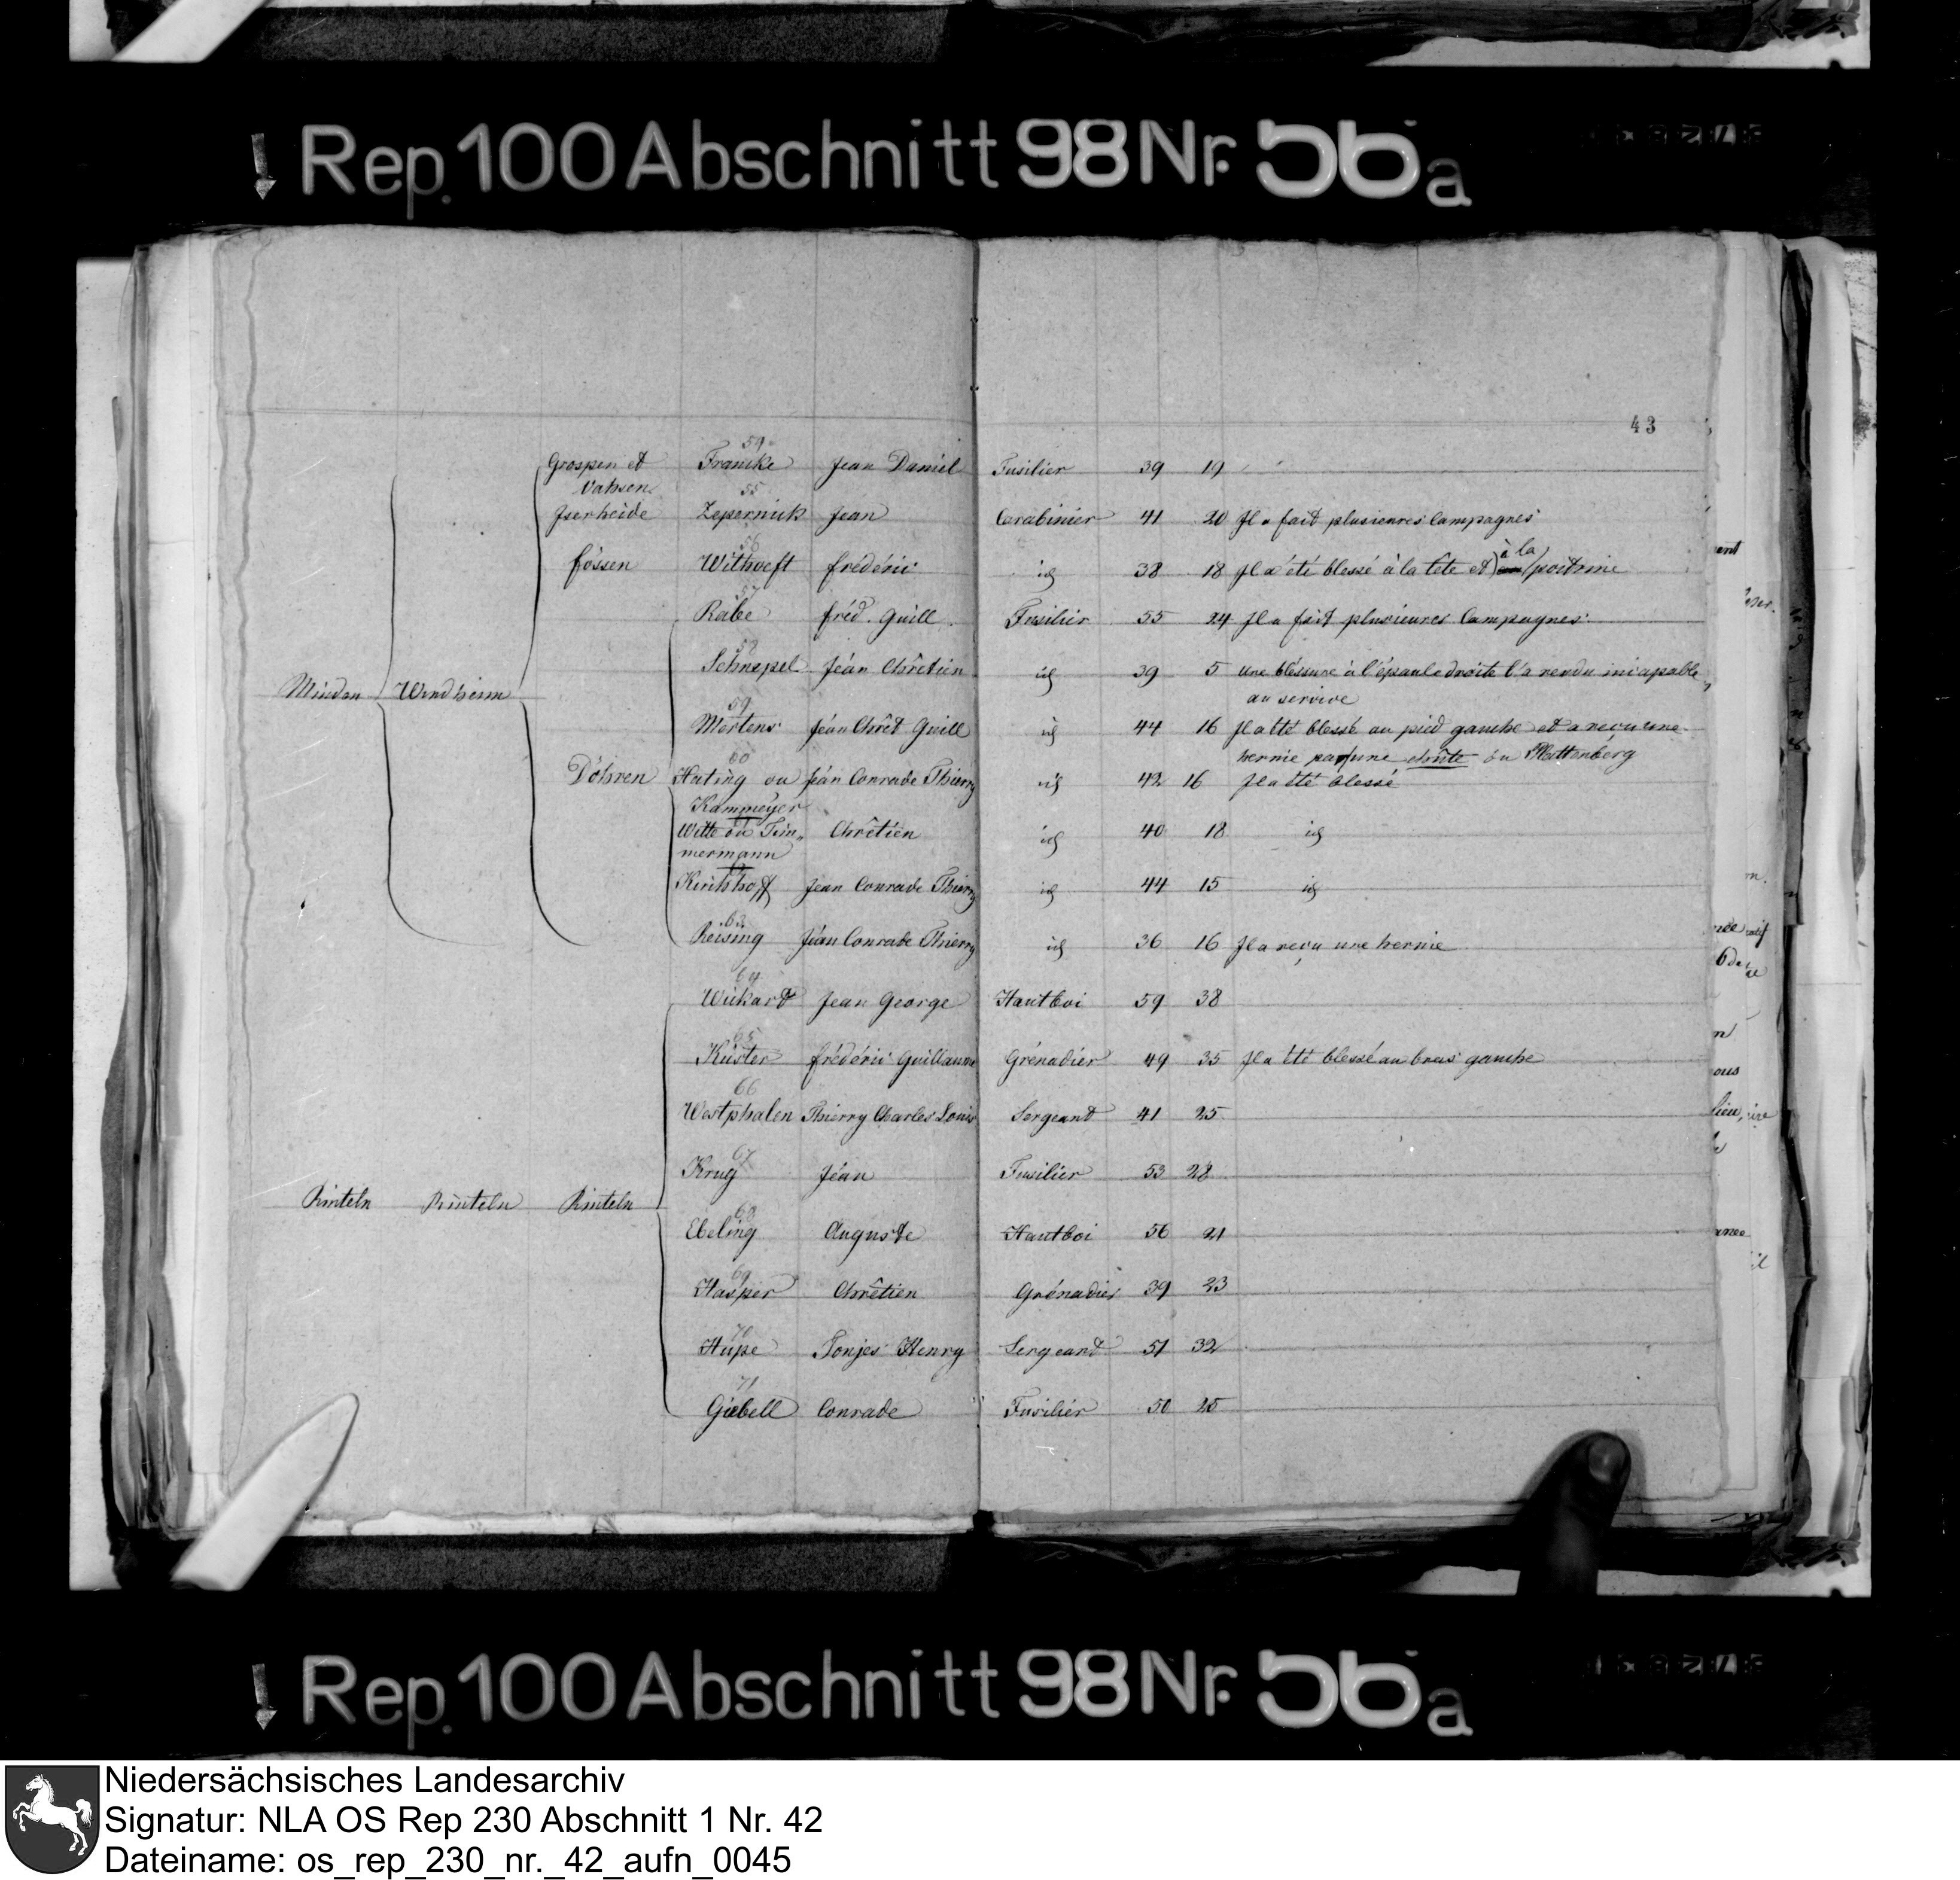 Rep. 100 Abschnitt 98 Nr. 56a
43
Grospen et 54 Francke Jean Daniel Fusilier 39 19
Vahsen
Jserheide 55 Zepernick Jean Carabinier 41 20 Jl a fait plusieures Campagnes
Fössen 56 Withoeft frédéric id 38 18 Jl a été blessé à la tête et à la poitrine
57 Rabe fréd. Guill. Fusilier 55 24 Jl a fait plusieures Campagnes
58 Schnepel Jéan Chrêtien id 39 5 une bléssure à l'épaule droite l'a rendu incapable
Minden Windheim au service
59 Mertens Jéan Chrêt Guill id 44 16 Jl a été blessé au pied gauche et a reçu une
hernie par une chûte du Plattenberg
Döhren 60 Hating ou Jéan Conrade Thierry id 42 16 Jl a été blessé
Kammeyer
Witte ou Tim„ Chrêtien id 40 18 id
mermann
Kirchhoff Jean Conrade Thierry id 44 15 id
63 Reising Jéan Conrade Thierry id 36 16 Jl a reçu une hernie
64 Wickard Jean George Hautboi 59 38
65 Küster frédéric Guillaume Grénadier 49 35 Jl a été blessé au bras gauche
66 Westphalen Thierry Charles Louis Sergeant 41 25
67 Krug Jéan Fusilier 53 28
Rinteln Rinteln Rinteln
68 Ebeling Auguste Hautboi 56 21
69 Hasper Chrêtien Grénadier 39 23
70 Hupe Tonjes Henry Sergeant 51 32
71 Giebell Conrade Fusilier 50 25
Rep. 100 Abschnitt 98 Nr. 56a
Niedersächsisches Landesarchiv
Signatur: NLA OS Rep 230 Abschnitt 1 Nr. 42
Dateiname: os_rep_230_nr._42_aufn_0045